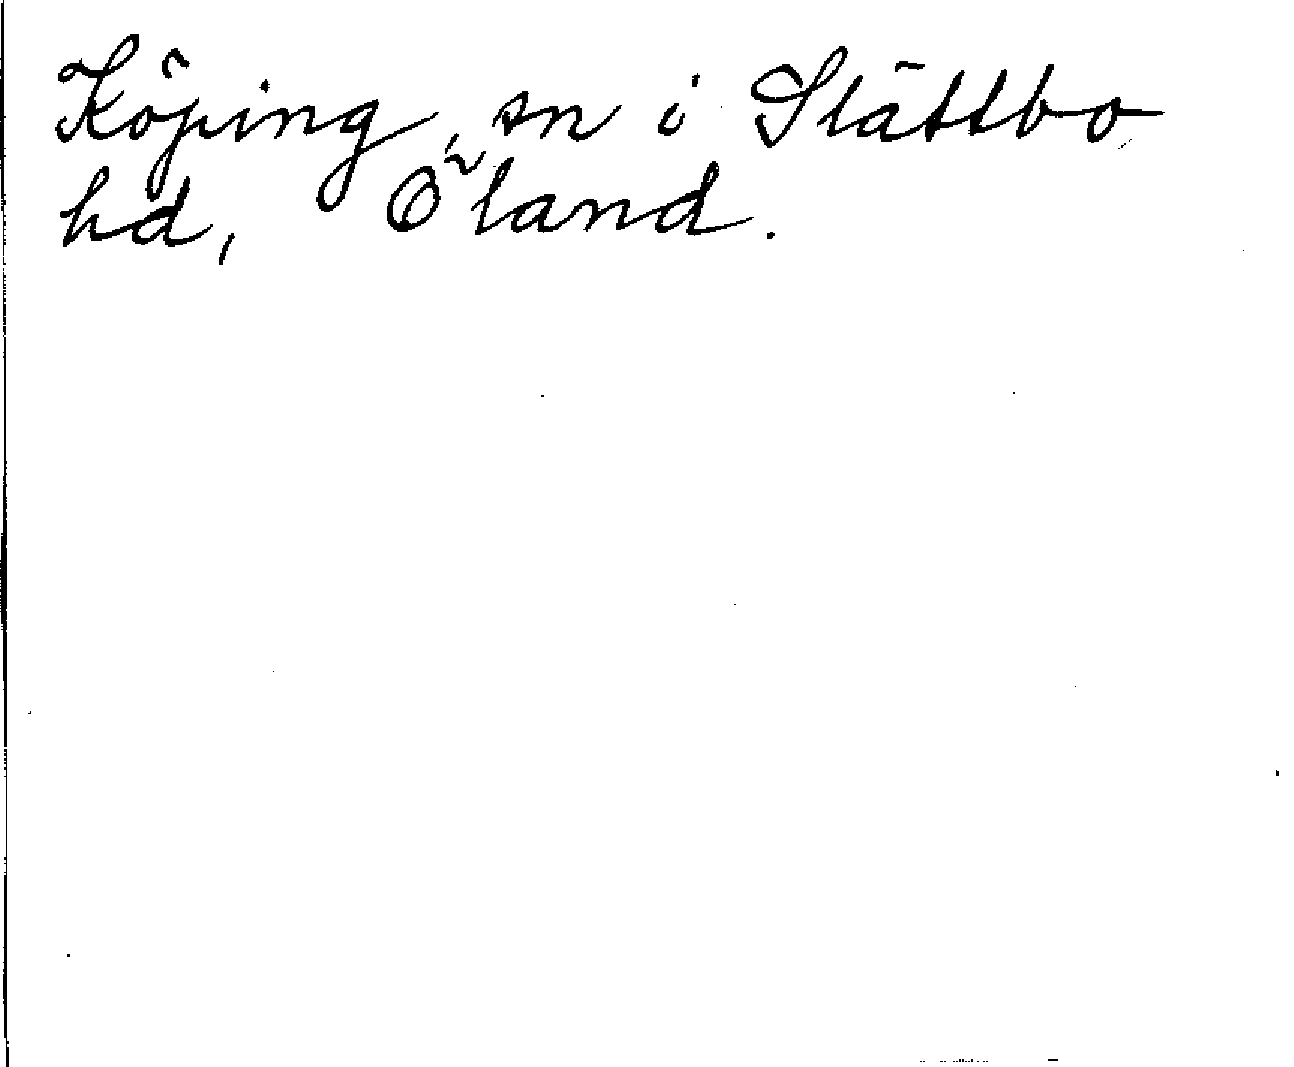 Köping, sn i Slättbo
hd, Öland.